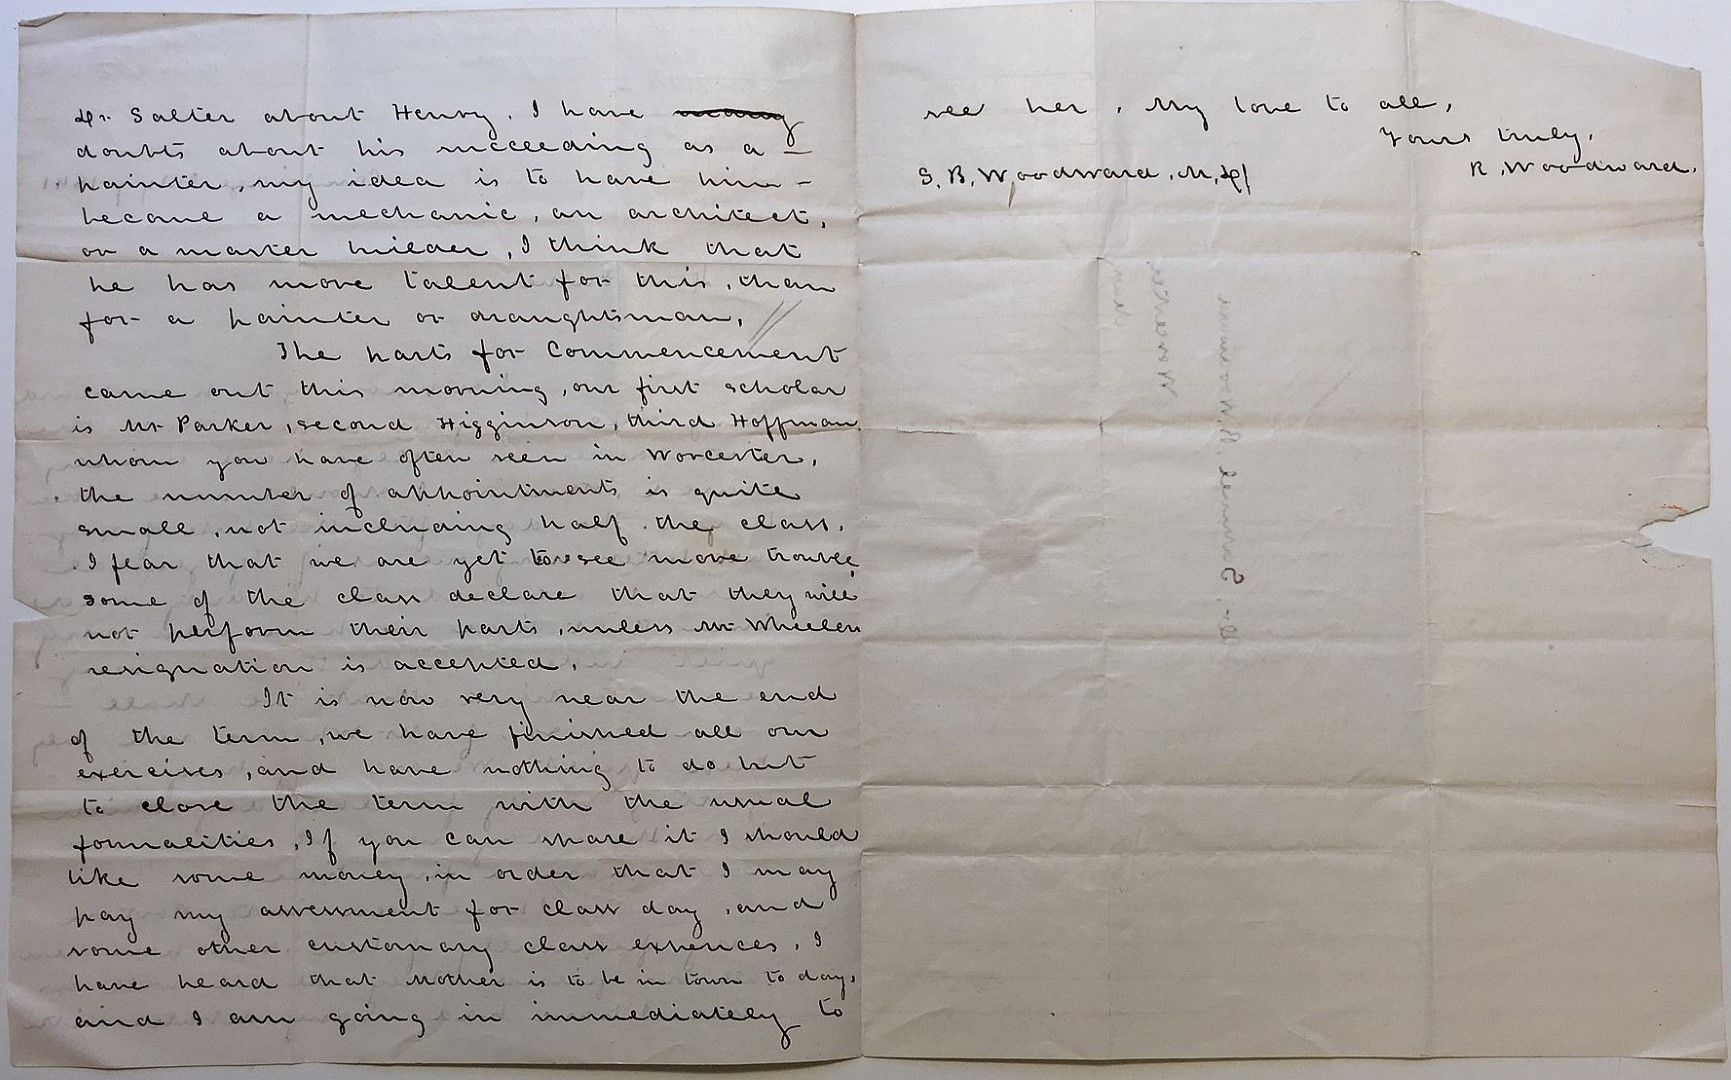 Dr. Salter about Henry. I have many
doubts about his succeeding as a
painter, my idea is to have him
become a mechanic, an architect,
or a master builder, I think that
he has more talent for this, than
for a painter or draughtsman,
The parts for Commencement
came out this morning, our first scholar
is Mr Parker, second Higginson, third Hoffman
whom you have often seen in Worcester,
the number of appointments is quite
small, not including half the class.
I fear that we are yet to see more trouble,
some of the class declare that they will
not perform their parts, unless Mr Wheelers
resignation is accepted.
It is now very near the end
of the term, we have finished all our
exercises, and have nothing to do but
to close the term with the usual
formalities, If you can spare it I should
like some money, in order that I may
pay my assessment for class day, and
some other customary class expences. I
have heard that Mother is to be in town to day,
and I am going in immediately to
see her. My love to all,
Yours truly,
R. Woodward.
S. B. Woodward, M, D/
Dr. Samuel B. Woodward
Worcester